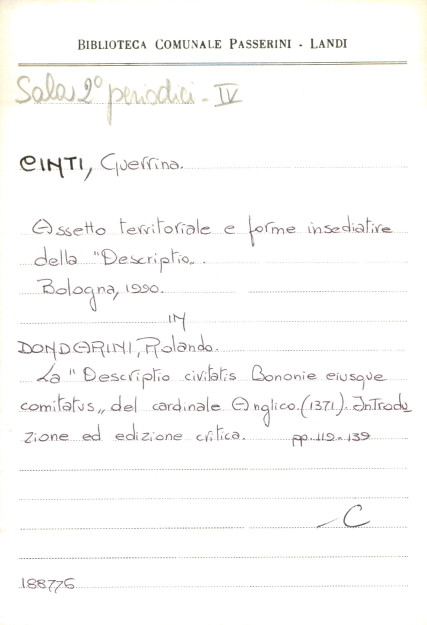 BIBLIOTECA COMUNALE PASSERINI - LANDI
Sala 2° periodici - IV
CINTI, Guerrina.
Assetto territoriale e forme insediative
della "Descriptio„.
Bologna, 1990.
IN
DONDARINI, Rolando.
La "Descriptio civitatis Bononie eiusque
comitatus„ del cardinale Anglico. (1371). Introdu
zione ed edizione critica. pp. 112-139
C
188776